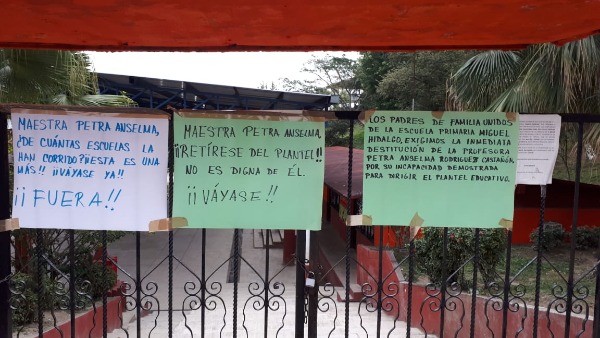 MAESTRA PETRA ANSELMA,
¿DE CUÁNTAS ESCUELAS LA
HAN CORRIDO? ¡¡ESTA ES UNA
MÁS!! ¡¡VÁYASE YA!!
¡¡FUERA!!
MAESTRA PETRA ANSELMA,
¡¡RETÍRESE DEL PLANTEL!!
NO ES DIGNA DE ÉL.
¡¡VÁYASE!!
LOS PADRES DE FAMILIA UNIDOS
DE LA ESCUELA PRIMARIA MIGUEL
HIDALGO, EXIGIMOS LA INMEDIATA
DESTITUCIÓN DE LA PROFESORA
PETRA ANSELMA RODRÍGUEZ CASTAÑÓN,
POR SU INCAPACIDAD DEMOSTRADA
PARA DIRIGIR EL PLANTEL EDUCATIVO.